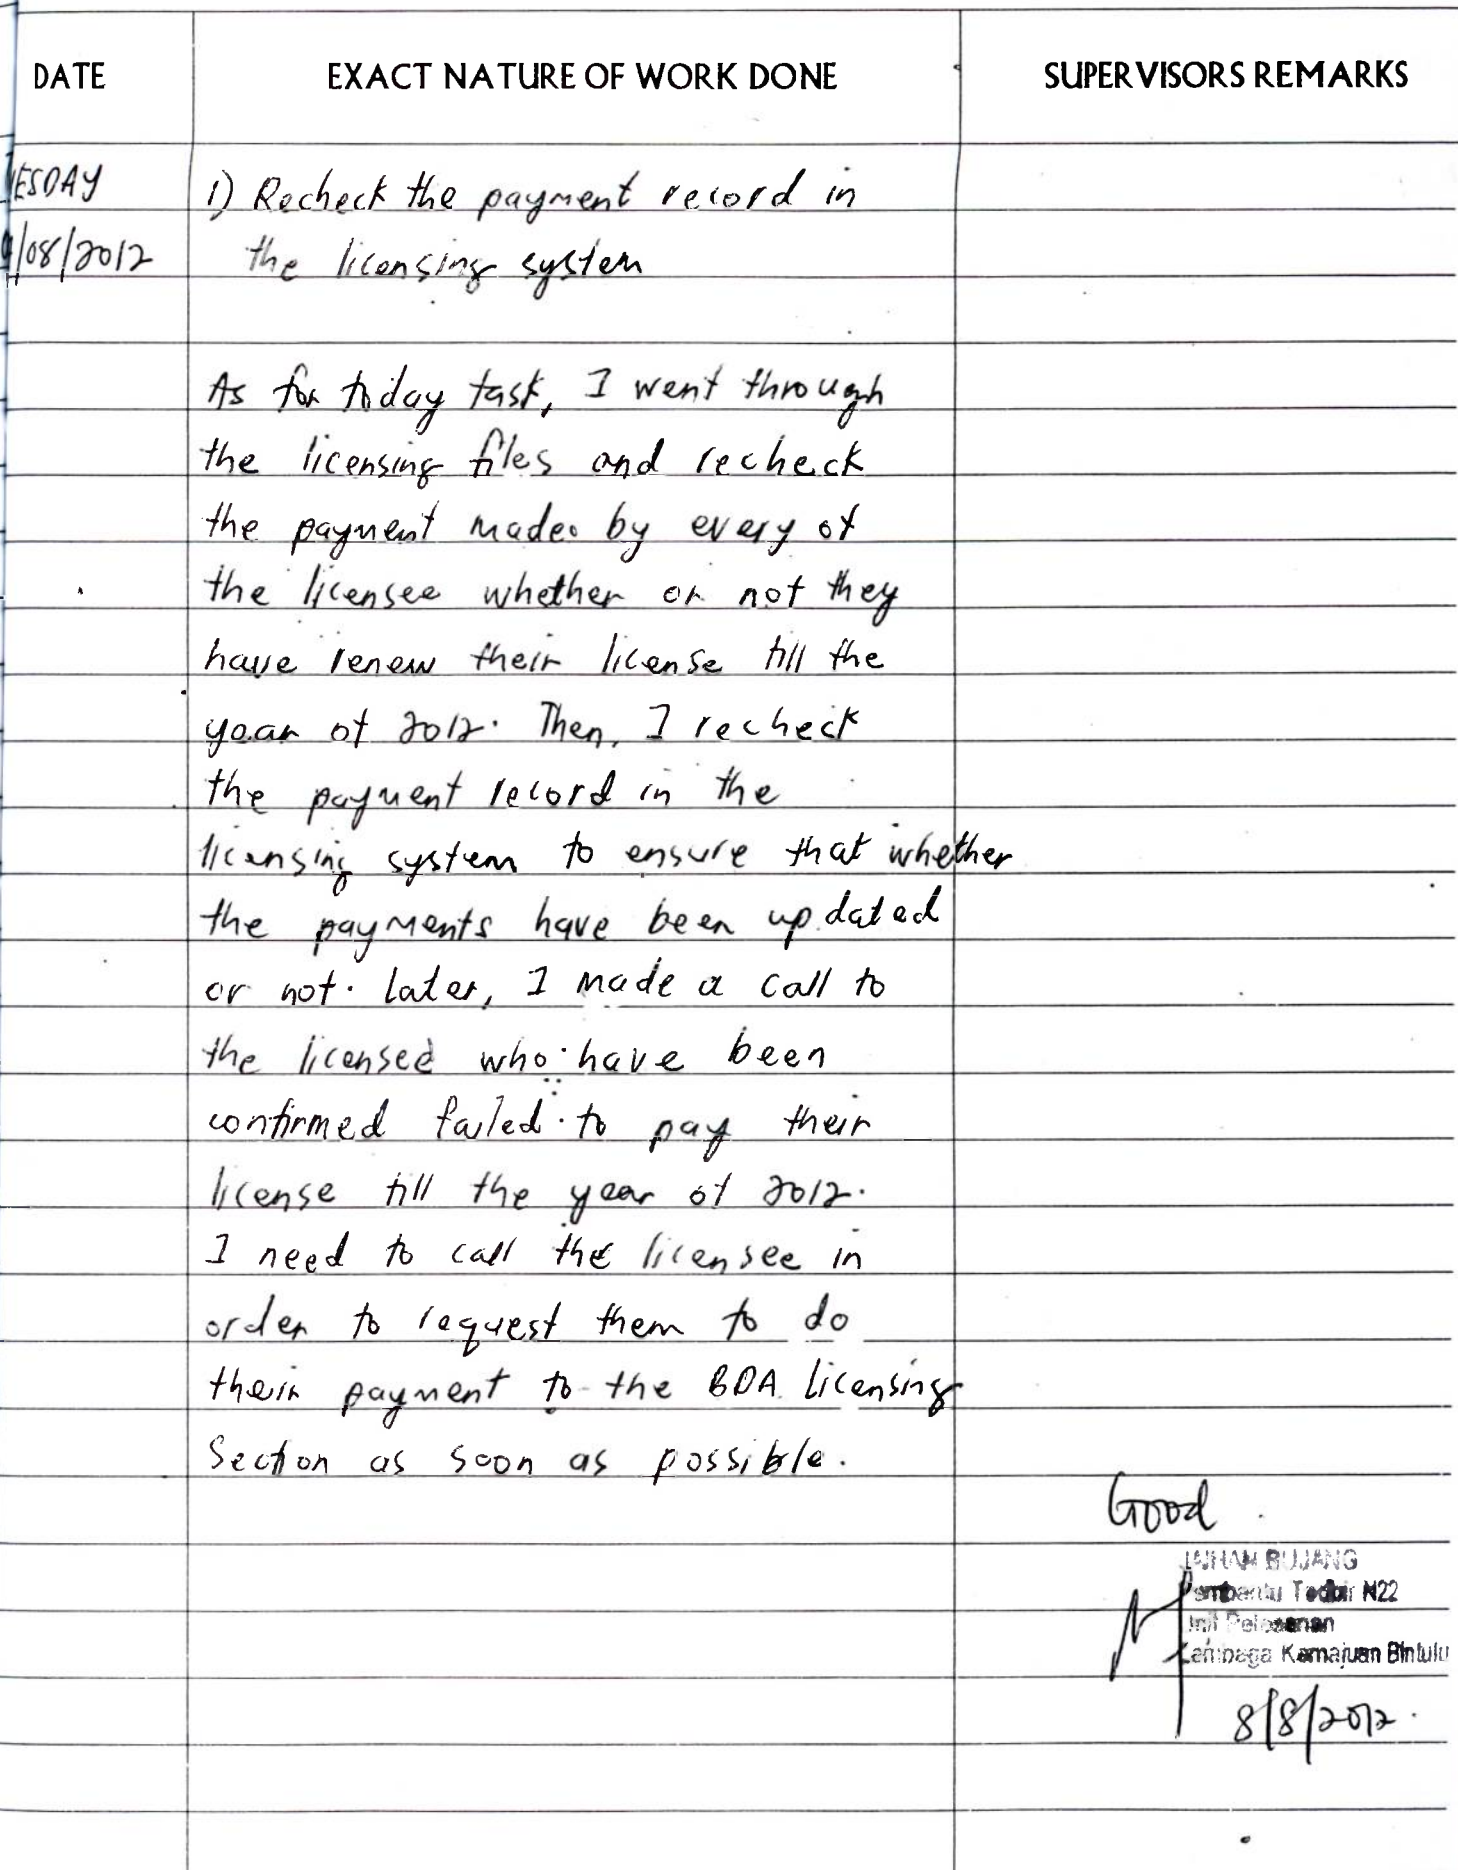 DATE EXACT NATURE OF WORK DONE SUPERVISORS REMARKS
ESDAY 1) Recheck the payment record in
/08/2012 the licensing system
As for today task, I went through
the licensing files and recheck
the payment made by every of
the licensee whether or not they
have renew their license till the
year of 2012. Then, I recheck
the payment record in the
licensing system to ensure that whether
the payments have been updated
or not. Later, I made a call to
the licensed who have been
confirmed failed to pay their
license till the year of 2012.
I need to call the licensee in
order to request them to do
their payment to the BDA licensing
Section as soon as possible.
Good.
BUJANG
Pembantu Tadbir N22
Unit
Lembaga Kemajuan Bintulu
8/8/2012.